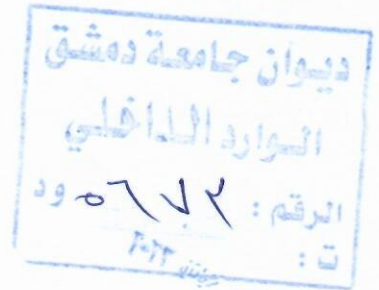 ديوان جامعة دمشق
الوارد الداخلي
الرقم : ٥٦٧٢ ود
ت :